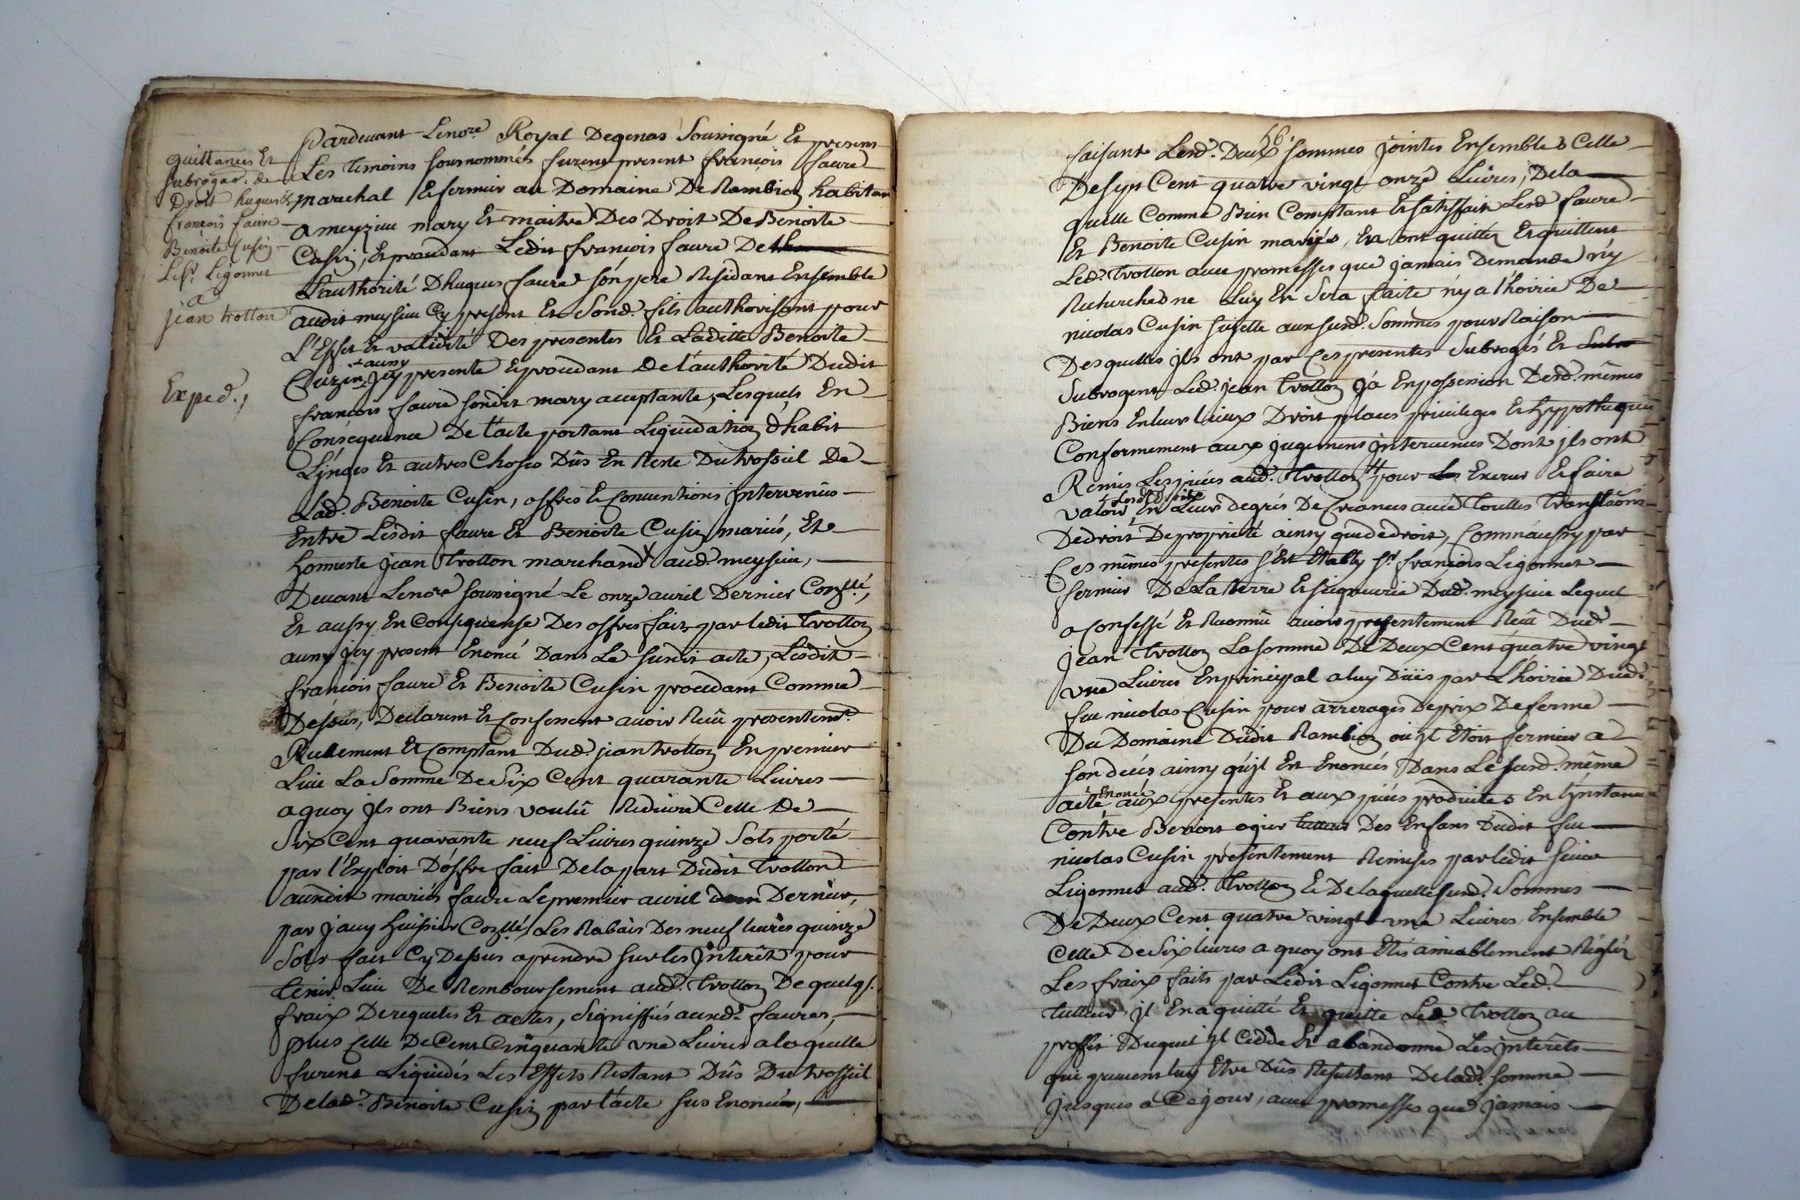 quittances Et
subrogaõn. de
Droit hugues &
françois faure
Benoite Cusin
Le Sr. Ligonnet
a
jean trollon
Exped.,
Pardevant Lenore. Royal Degenas Soussigné Et presens
Les temoins sousnommés furent present françois faure
marechal Et fermier au Domaine De Rambion habitan
a meyzieu mary Et maitre Des Droit De Benoite
Cusin, Et procedant Ledit françois faure De
L'authorité D'hugues faure son pere Residant Ensemble
audit meysieu Cy present Et Sond. fils authorisant pour
L'Effet Et validité Des presentes Et Laditte Benoite
Cuzin aussy Icy presente Et procedant de l'authorité Dudit
françois faure sondit mary acceptante, Lesquels En
Consequence De l'acte portant Liquidation d'habit
Linges Et autres Choses Dûs En Reste Du trossel De
Lad. Benoite Cusin, offres Et Conventions intervenues
Entre Lesdit faure Et Benoite Cusin mariés, Et
honneste jean trollon marchand aud. meysieu,
Devant Lenore soussigné Le onze avril Dernier Conllé,
Et aussy En Consequense Des offres fait par ledit trollon
aussy icy present Enoncé Dans Le susdit acte, Lesdit
françois faure Et Benoite Cusin procedant Comme
Dessus, Declarent Et Confessent avoir Reçû presentemt.
Reellement Et Comptant Dud. jean trollon En premier
Lieu La Somme De Six Cent quarante Livres
a quoy ils ont Biens voulû Reduire Celle de
Six Cent quarante neuf Livres quinze Sols porté
par l'Exploit D'offre fait De la part Dudit trollon
audit mariés faure Le premier avril Dernier,
par jauny huissier Conllé, Les Rabais Des neuf livres quinze
Sols fait Cy Dessus a prendre sur les Interêt pour
tenir Lieu De Remboursement aud. trollon De quelqs.
fraix De requetes Et actes, signiffiés auxd. faures,
plus Celle De Cent Cinquante une Livres a laquelle
furent Liquidés Les Effets Restant Dûs Du trossel
De lad. Benoite Cusin par l'acte sus Enoncé,
56
faisant Lesd. Deux sommes jointes Ensembles Celle
De sept Cent quatre vingt onze Livres, De la
quelle Comme Bien Comptant Et satisfait Lesd. faure
Et Benoite Cusin mariés, En ont quitté Et quittent
Led. trollon avec promesses que jamais Demande n'y
Recherche ne Luy En Sera faite n'y a l'hoirie De
nicolas Cusin sujette aux susd. Sommes pour Raison
Desquelles ils ont par Ces presentes Subrogés Et
Subrogent Led. jean trollon ja En possession Desd. mêmes
Biens En leur lieux Droit places privileges Et hypotheques
Conformement aux jugemens intervenues Dont ils ont
Remis Les pièces aud. trollon pour Exercer Et faire
valoir Lesd. Droits En Leurs degrés De Creances avec Touttes Translaõns
De droit De proprieté ainsy que de droit, Comm'aussy par
Ces mêmes presentes s'Est Etably Sr. françois Ligonnet
fermier De La terre Et seigneurie Dud. meysieu Lequel
a Confessé Et Reconnû avoir presentement Reçû Dud.
jean trollon La somme De Deux Cent quatre vingt
une Livres En principal a luy Dûes par L'hoirie Dud.
feu nicolas Cusin pour arrerages De prix De ferme
Du Domaine Dudit Rambion où il Etoit fermier a
son decés ainsy qu'il Est Enoncés Dans Le susd. même
acte Enoncé aux presentes Et aux pièces produites En l'instance
Contre Benoit ogier tutteur Des Enfans Dudit feu
nicolas Cusin presentement Remises par ledit sieur
Ligonnet aud. trollon Et De laquelle susd. Sommes
De Deux Cent quatre vingt une Livres Ensemble
Celle De Six livres a quoy ont Etés amiablement Réglés
Les fraix faits par Ledit Ligonnet Contre Led.
tutteur, il En a quitté Et quitte Led. trollon au
proffit Duquel il Cedde Et abandonne Les interêts
qui peuvent luy Etre Dûs Resultant De lad. Somme
jusques a Ce jour, avec promesses que jamais